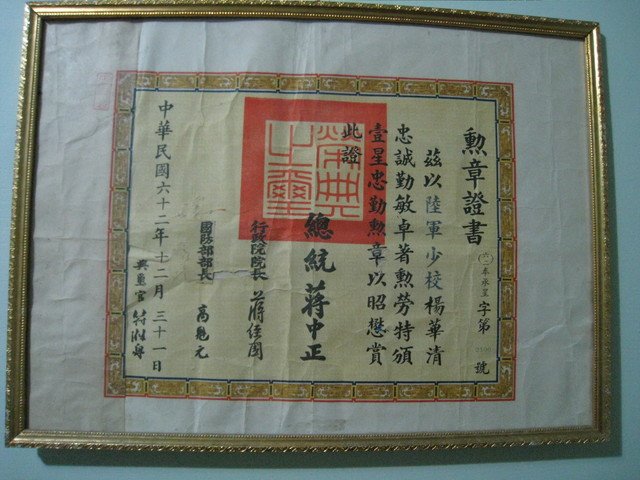 勲章證書
字第
號
茲以陸軍少校楊華清
忠誠勤敏卓著勲勞特頒
壹星忠勤勲章以昭懋賞
此證
榮典之璽
總統 蔣中正
行政院院長 蔣經國
國防部部長 高魁元
中華民國六十二年十二月三十一日
典璽官